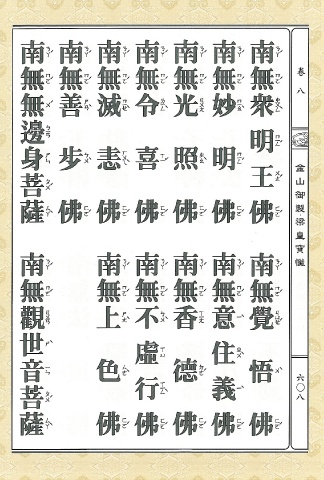 卷八
金山御製梁皇寶懺
六〇八
南無眾明王佛
南無覺悟佛
南無妙明佛
南無意住義佛
南無光照佛
南無香德佛
南無令喜佛
南無不虛行佛
南無滅恚佛
南無上色佛
南無善步佛
南無無邊身菩薩
南無觀世音菩薩